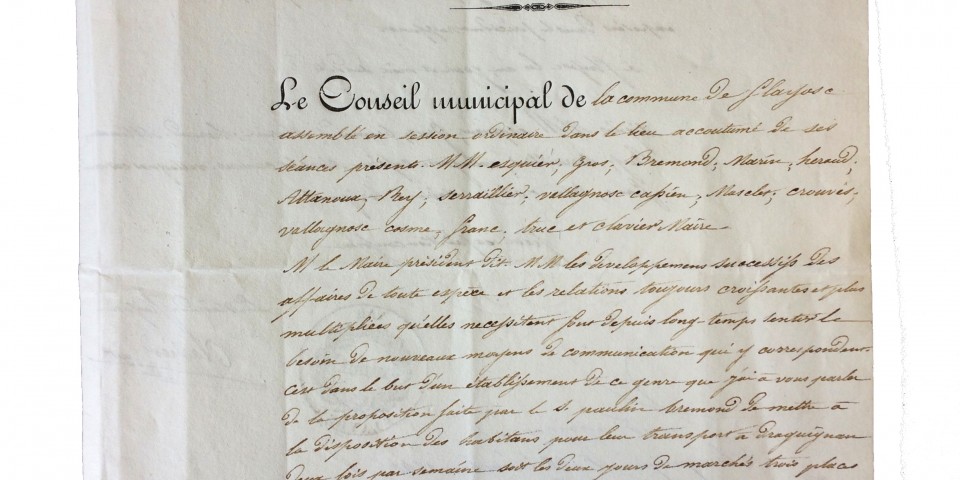 Le Conseil municipal de la commune de flayosc
assemblé en session ordinaire dans le lieu accoutumé de ses
séances présents M.M. esquier, gros, Bremond, Marin, heraud,
Attanoux, Rey, serraillier, vallagnosc cassien, Masclet, crouvès,
vallagnosc cosme, franc, truc et clavier Maire.
Mr le Maire président dit. MM les développemens successifs des
affaires de toute espèce et les relations toujours croissantes et plus
multipliées qu'elles necessitent font depuis long-temps sentir le
besoin de nouveaux moyens de communication qui y correspondent.
c'est dans le but d'un établissement de ce genre que j'ai à vous parler
de la proposition faite par le s. paulin bremond de mettre à
la disposition des habitans pour leur transport à draguignan
deux fois par semaine soit les deux jours de marchés trois places